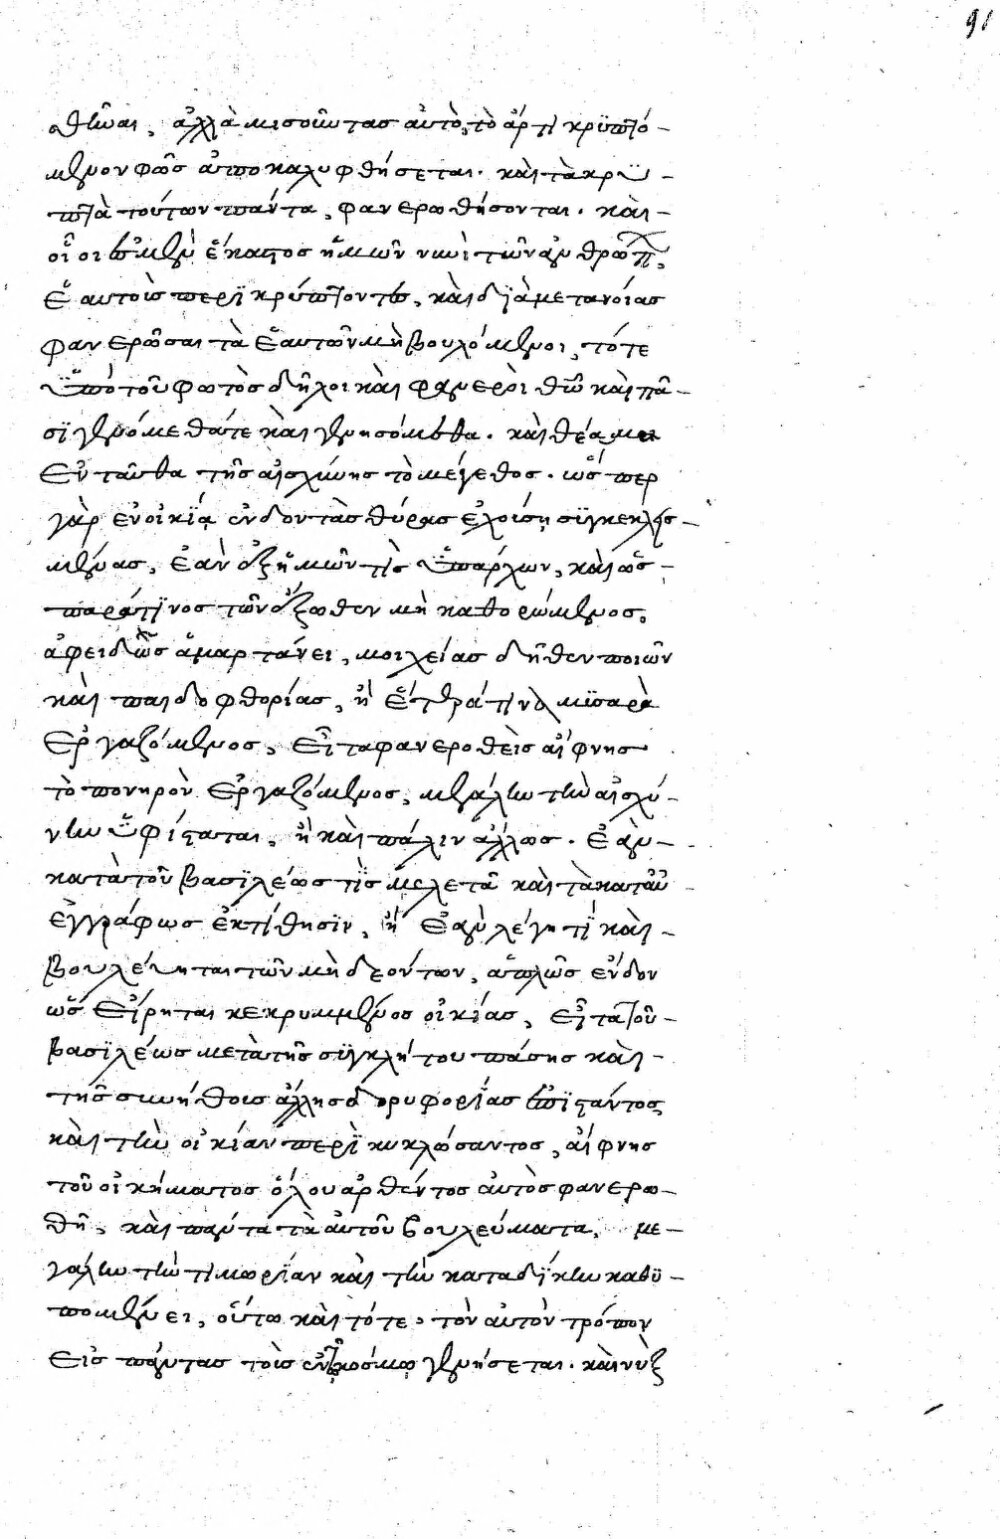 91
θῆναι, ἀλλὰ μισοῦντας αὐτὸ, τὸ ἄρτι κρϋπτό-
μενον φῶς ἀποκαλυφθήσεται. καὶ τὰ κρϋ-
πτὰ τούτων πάντα, φανερωθήσονται. καὶ-
οἷοι ἐσμὲν ἕκαστος ἡμῶν νυνὶ τῶν ἀνθρώπ,
ἑαυτοὺς περϊκρύπτοντες, καὶ δϊὰ μετανοίας
φανερῶσαι τὰ ἑαυτῶν μὴ βουλόμενοι, τότε
ὑπὸ τοῦ φωτὸς δῆλοι καὶ φανεροὶ θῶ καὶ πᾶ-
σϊ γενόμεθά τε καὶ γενησόμεθα. καὶ θέα μοι
ἐνταῦθα τῆς αἰσχύνης τὸ μέγεθος. ὥσπερ
γὰρ ἐν οἰκίᾳ ἔνδον τὰς θύρας ἐχούσῃ σϋγκεκλεισ-
μένας, ἐὰν ἐξ ἡμῶν τὶς ὑπάρχων, καὶ ὡς-
παρά τϊνος τῶν ἔξωθεν μὴ καθορώμενος,
ἀφειδῶς ἁμαρτάνει, μοιχείας δῆθεν ποιῶν
καὶ παιδοφθορίας, ἢ ἕτερά τϊνα μϊσαρὰ
ἐργαζόμενος, εἶτα φανεροθεὶς αἴφνης
τὸ πονηρὸν ἐργαζόμενος, μεγάλην τὴν αἰσχύ-
νην ὑφίσταται, ἢ καὶ πάλιν ἄλλως. ἐὰν-
κατὰ τοῦ βασϊλέως τϊς μελετᾶ καὶ τὰ κατ αὐ
ἐγγράφως ἐκτίθησϊν, ἢ ἐὰν λέγη τϊ καὶ-
βουλέυηται τῶν μὴ δεόντων, ἁπλῶς ἔνδον
ὡς εἴρηται κεκρυμμένος οἰκίας, εἶτα τοῦ-
βασϊλέως μετὰ τῆς σϋγκλήτου πάσης καὶ-
τῆς συνήθους ἄλλης δορυφορίας ἐπϊστάντος
καὶ τὴν οἰκίαν περϊκυκλώσαντος, αἴφνης
τοῦ οἰκήματος ὅλου ἀρθέντος αὐτὸς φανερω-
θῆ, καὶ πάντα τὰ αὐτοῦ βουλεύματα, με-
γάλην τὴν τϊμωρίαν καὶ τὴν καταδίκην καθϋ-
πομένει, οὕτω καὶ τότε. τὸν αὐτὸν τρόπον
εἰς πάντας τοὺς ἐν τῶ κόσμῳ γενήσεται. καὶ νὺξ